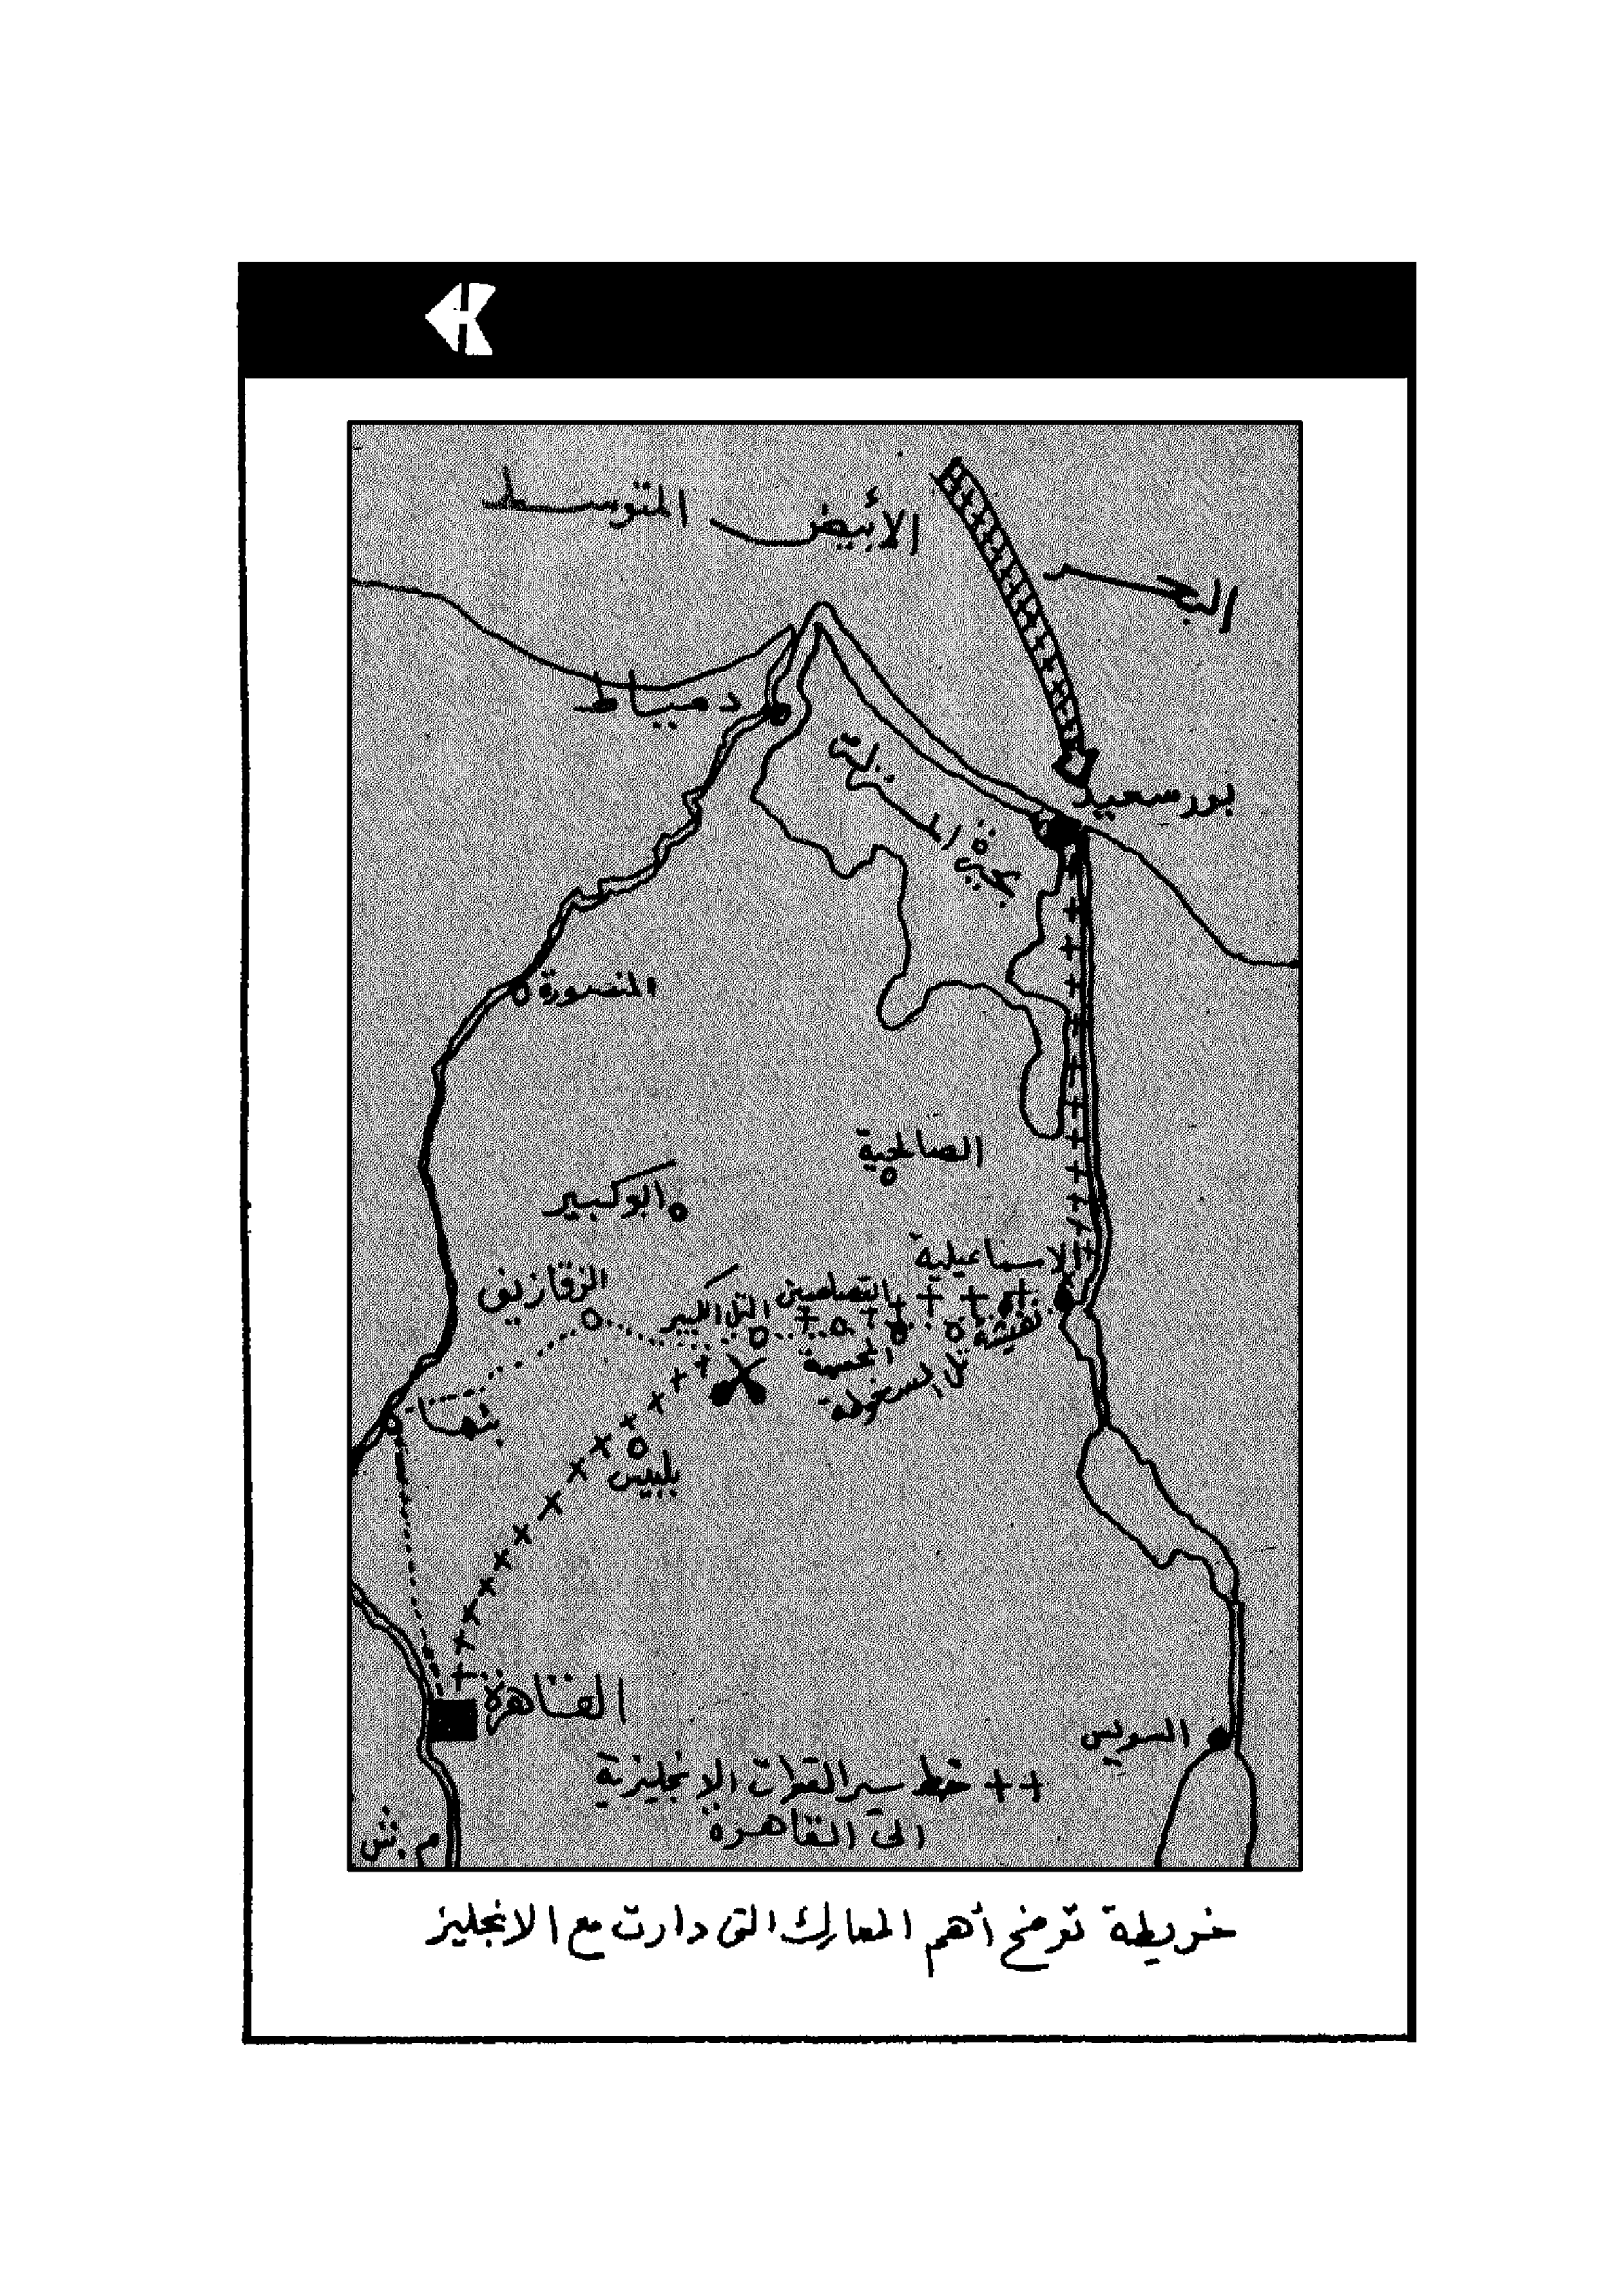 البحر الأبيض المتوسط
دمياط
بحيرة المنزلة
بورسعيد
المنصورة
الصالحية
ابوكبير
الاسماعيلية
الزقازيق
التل الكبير
القصاصين
نفيشة
المحسمة
تل المسخوطة
بنها
بلبيس
القاهرة
السويس
++ خط سير القوات الإنجليزية
الى القاهرة
م.ش
خريطة توضح أهم المعارك التى دارت مع الانجليز